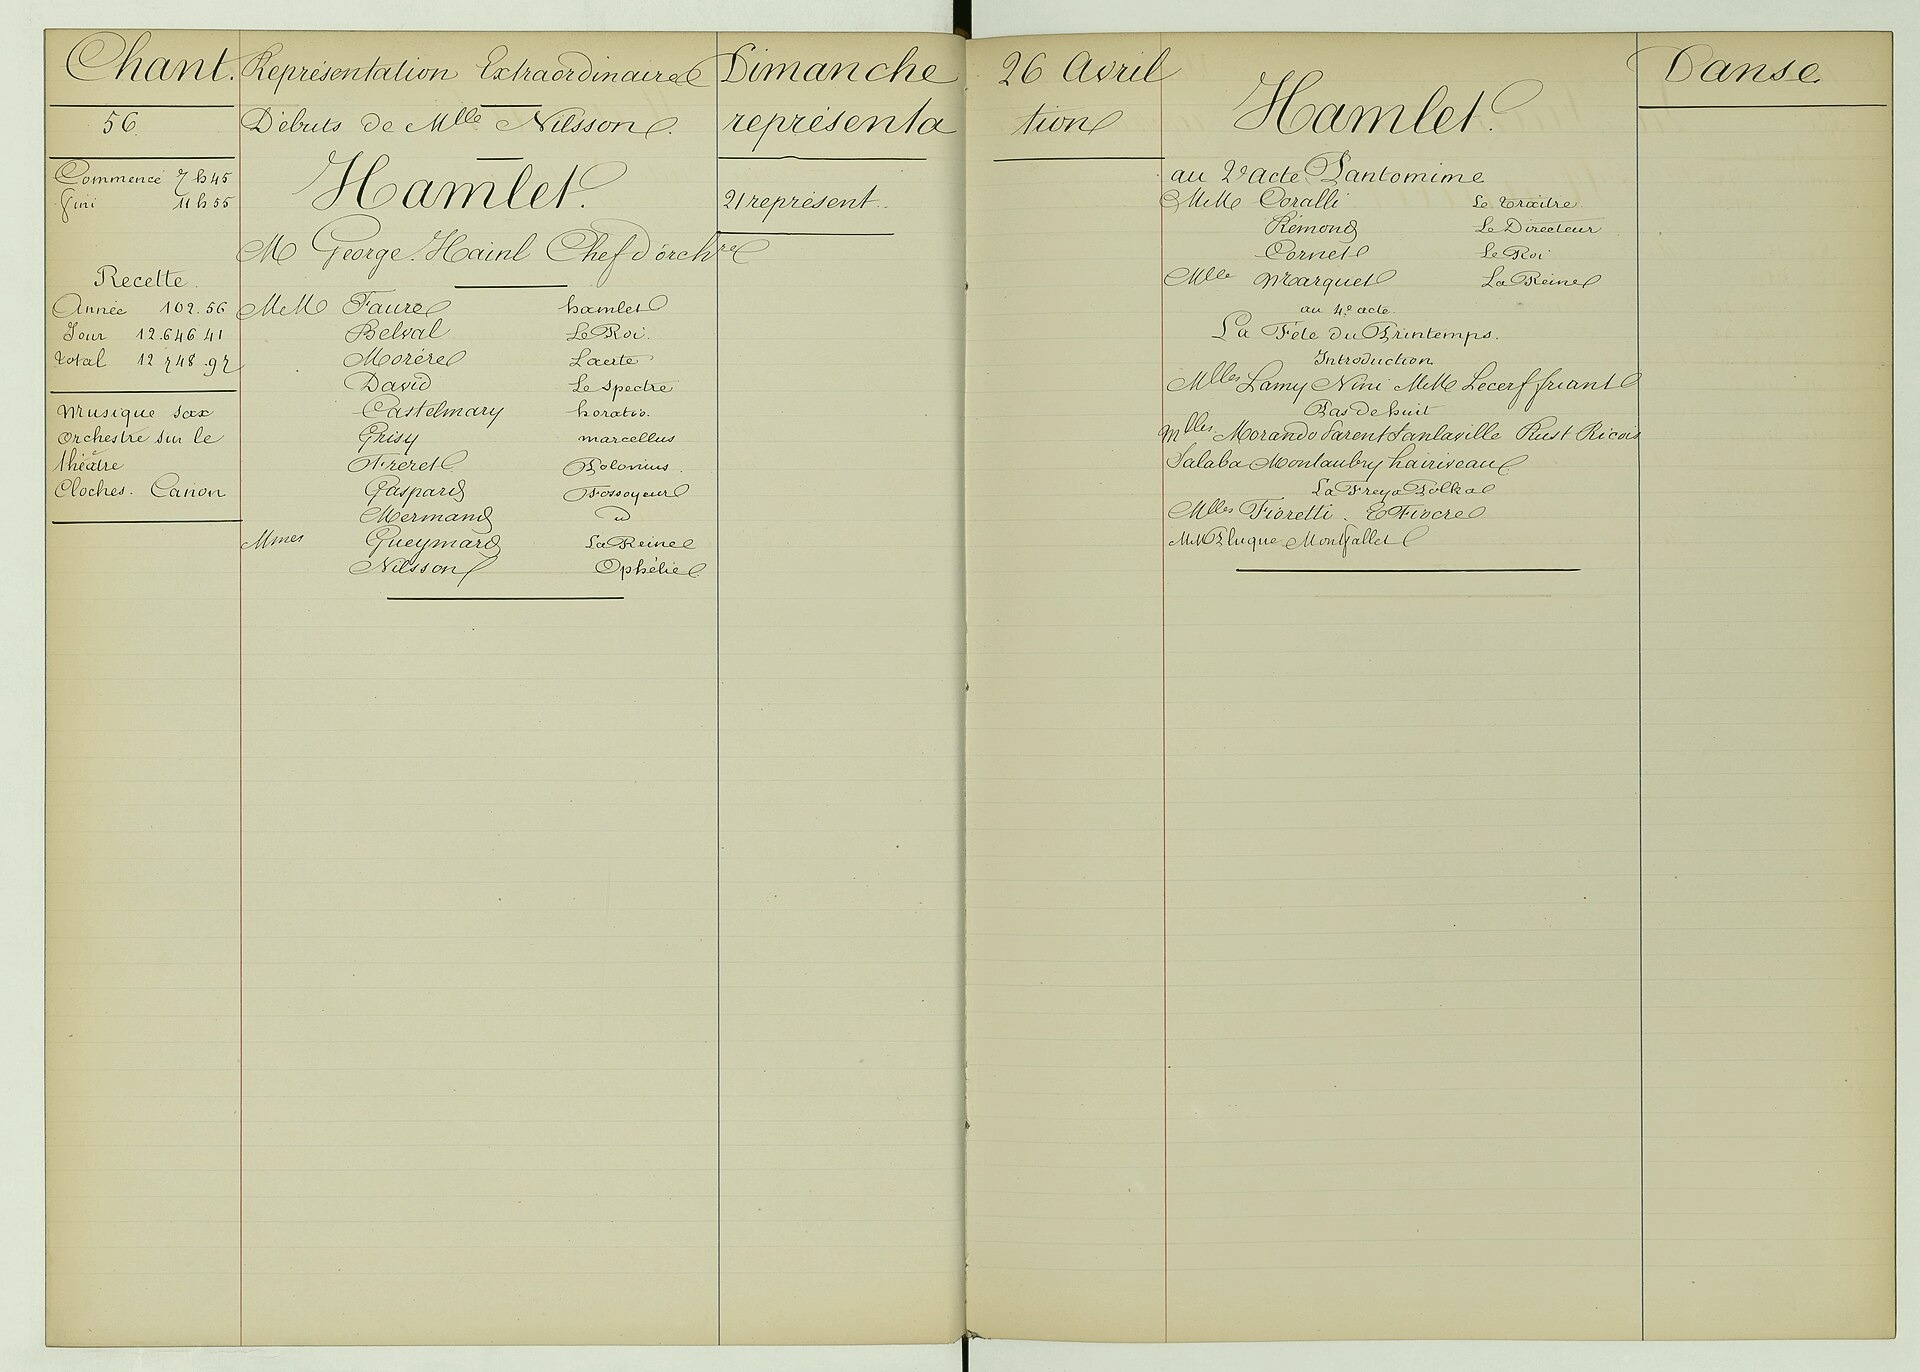 Chant.
56
Commencé 7 h 45
fini 11 h 55
Recette.
Année 102.56
Jour 12.646 41
total 12 748.97
Musique sax
Orchestre sur le
théâtre
Cloches. Canon
Représentation Extraordinaire
Débuts de Mlle Nilsson.
Hamlet.
M George Hainl Chef d'orchre
MM Faure hamlet
Belval Le Roi.
Morére Laerte
David Le Spectre
Castelmary horatio.
Grisy marcellus
Fréret Polonius.
Gaspard Fossoyeur
Mermand id
Mmes Gueymard La Reine
Nilsson Ophélie
Dimanche 26 Avril
représentation
21 représent.
Hamlet.
au 2e acte Pantomime
MM Coralli Le traitre
Rémond Le Directeur
Cornet Le Roi
Mlle Marquet La Reine
au 4e acte.
La Fête du Printemps.
Introduction
Mlles Lamy Nini MM Lecerf friant
Pas de huit
Mlles Morando Parent Sanlaville Rust Ricois
Salaba Montaubry
La Freya Polka
Mlles Fioretti. E Fiocre
MM Pluque Montfallet
Danse